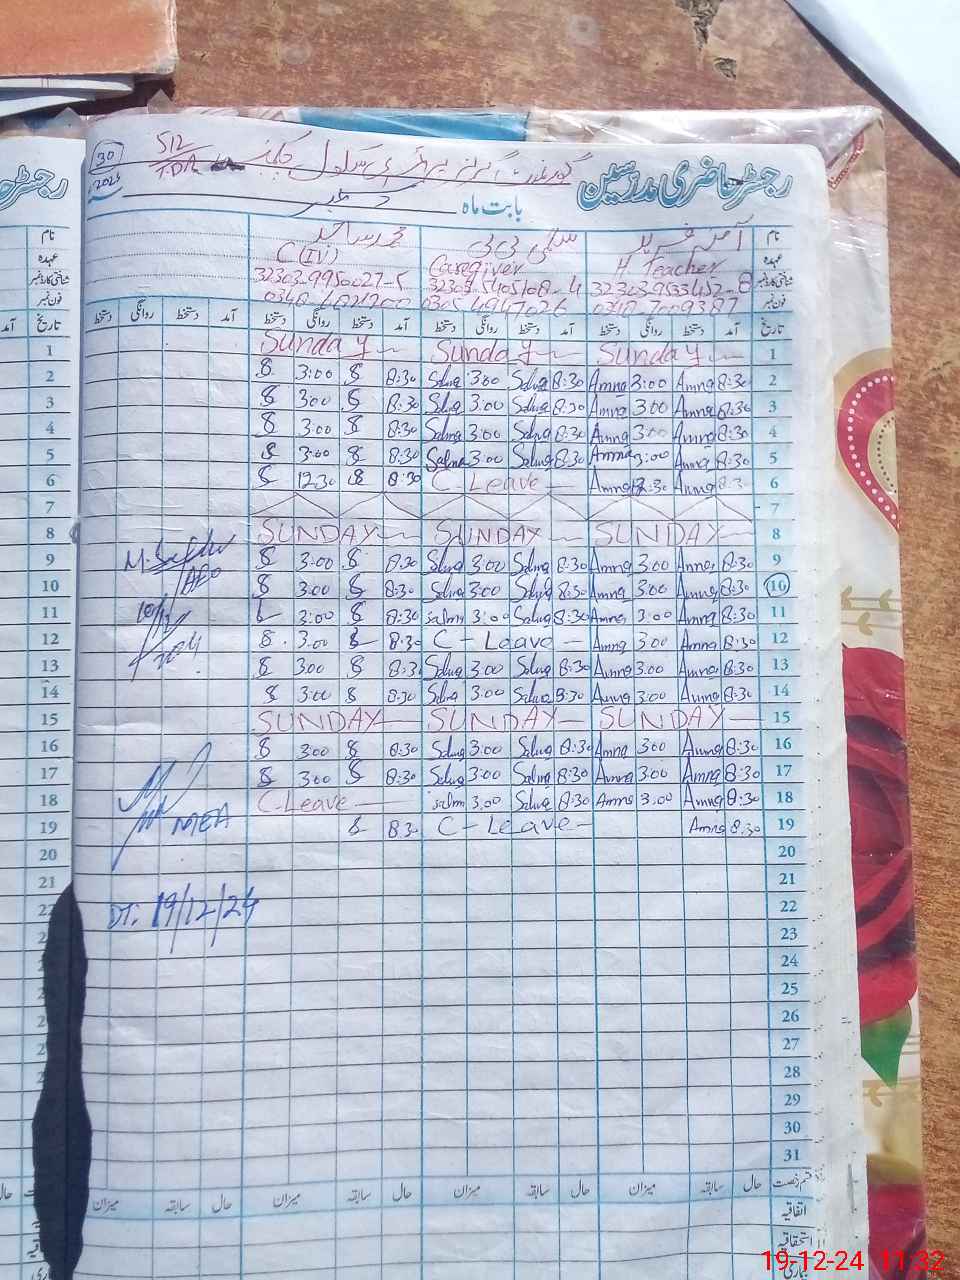 30
512/TDA گورنمنٹ گرلز پرائمری سکول چک نمبر
رجسٹر حاضری مدرسین
2024
بابت ماہ دسمبر
نام آمنہ فرید سلمیٰ بی بی محمد ساجد
عہدہ H Teacher Caregiver C(IV)
شناختی کارڈ نمبر 32303-9533452-8 32303-5405108-4 32303-9950027-5
فون نمبر
تاریخ آمد دستخط روانگی دستخط آمد دستخط روانگی دستخط آمد دستخط روانگی دستخط آمد دستخط روانگی دستخط
1 Sunday Sunday Sunday 1
2 8 3:00 8 8:30 Salma 3:00 Salma 8:30 Amna 3:00 Amna 8:30 2
3 8 3:00 8 8:30 Salma 3:00 Salma 8:30 Amna 3:00 Amna 8:30 3
4 8 3:00 8 8:30 Salma 3:00 Salma 8:30 Amna 3:00 Amna 8:30 4
5 8 3:00 8 8:30 Salma 3:00 Salma 8:30 Amna 3:00 Amna 8:30 5
6 8 12:30 8 8:30 C-Leave Amna 12:30 Amna 8:30 6
7 7
8 SUNDAY SUNDAY SUNDAY 8
9 8 3:00 8 8:30 Salma 3:00 Salma 8:30 Amna 3:00 Amna 8:30 9
AEO
10 8 3:00 8 8:30 Salma 3:00 Salma 8:30 Amna 3:00 Amna 8:30 10
10/12/2024
11 3:00 8 8:30 Salma 3:00 Salma 8:30 Amna 3:00 Amna 8:30 11
12 8 3:00 8 8:30 C-Leave Amna 3:00 Amna 8:30 12
13 8 3:00 8 8:30 Salma 3:00 Salma 8:30 Amna 3:00 Amna 8:30 13
14 8 3:00 8 8:30 Salma 3:00 Salma 8:30 Amna 3:00 Amna 8:30 14
15 SUNDAY SUNDAY SUNDAY 15
16 8 3:00 8 8:30 Salma 3:00 Salma 8:30 Amna 3:00 Amna 8:30 16
17 8 3:00 8 8:30 Salma 3:00 Salma 8:30 Amna 3:00 Amna 8:30 17
18 C-Leave Salma 3:00 Salma 8:30 Amna 3:00 Amna 8:30 18
MEA
19 8 8:30 C-Leave Amna 8:30 19
20 20
21 21
DT: 19/12/24
22 22
23
24
25
26
27
28
29
30
31
حال سابقہ میزان حال سابقہ میزان حال سابقہ میزان حال سابقہ میزان
اتفاقیہ
استحقاقیہ
بیماری
19-12-24 11:32